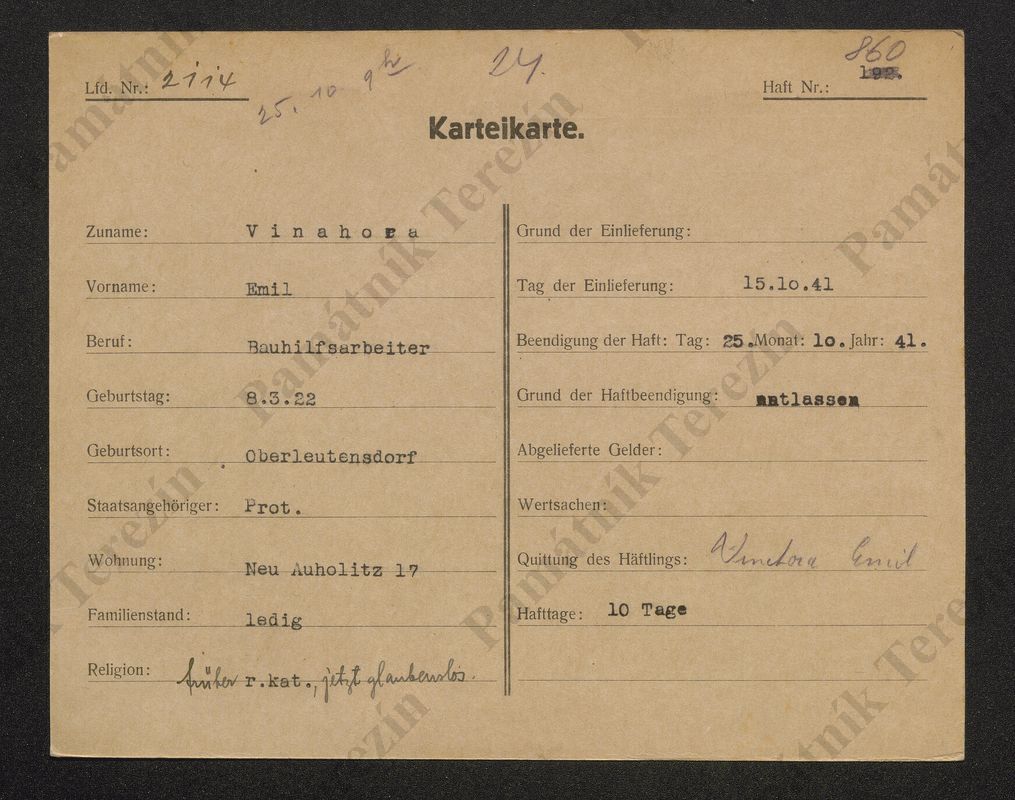 860
Lfd. Nr.: 2114 25. 10 9h 24. Haft Nr.: 192.
Karteikarte.
Zuname: Vinahora
Vorname: Emil
Beruf: Bauhilfsarbeiter
Geburtstag: 8.3.22
Geburtsort: Oberleutensdorf
Staatsangehöriger: Prot.
Wohnung: Neu Auholitz 17
Familienstand: ledig
Religion: früher r.kat., jetzt glaubenslos.
Grund der Einlieferung:
Tag der Einlieferung: 15.10.41
Beendigung der Haft: Tag: 25. Monat: 10. Jahr: 41.
Grund der Haftbeendigung: entlassen
Abgelieferte Gelder:
Wertsachen:
Quittung des Häftlings: Emil
Hafttage: 10 Tage
Památník Terezín